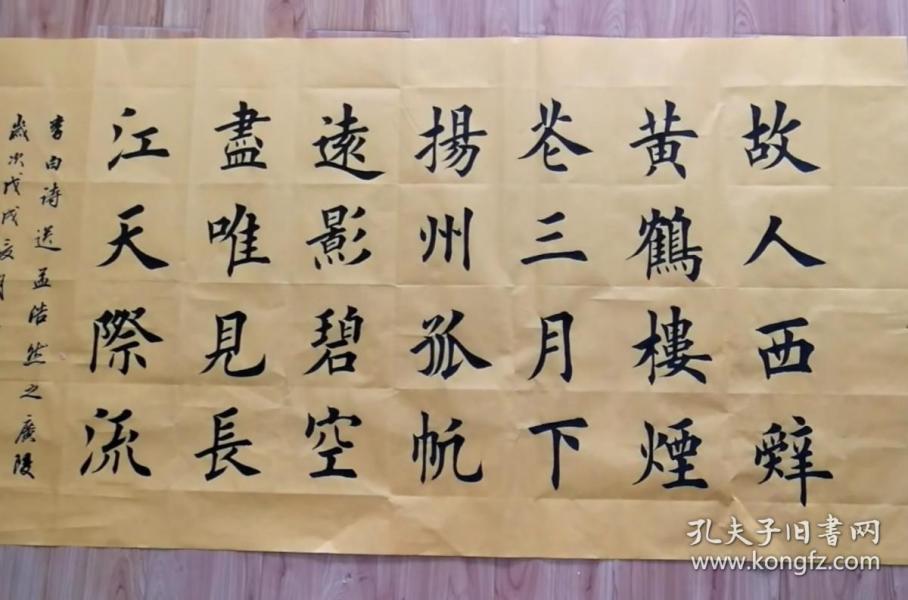 故人西辤
黃鶴樓煙
苍三月下
揚州孤帆
遠影碧空
盡唯見長
江天際流
李白诗送孟浩然之廣陵
歲次戊戌
孔夫子旧書网
www.kongfz.com